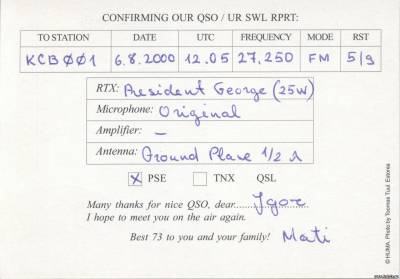 CONFIRMING OUR QSO / UR SWL RPRT:
TO STATION DATE UTC FREQUENCY MODE RST
KCBØØ1 6.8.2000 12.05 27,250 FM 5/9
RTX: President George (25W)
Microphone: Original
Amplifier: —
Antenna: Ground Plane 1/2 λ
X PSE TNX QSL
Many thanks for nice QSO, dear Igor
I hope to meet you on the air again.
Best 73 to you and your family! Mati
© HUMA. Photo by Toomas Tuul. Estonia